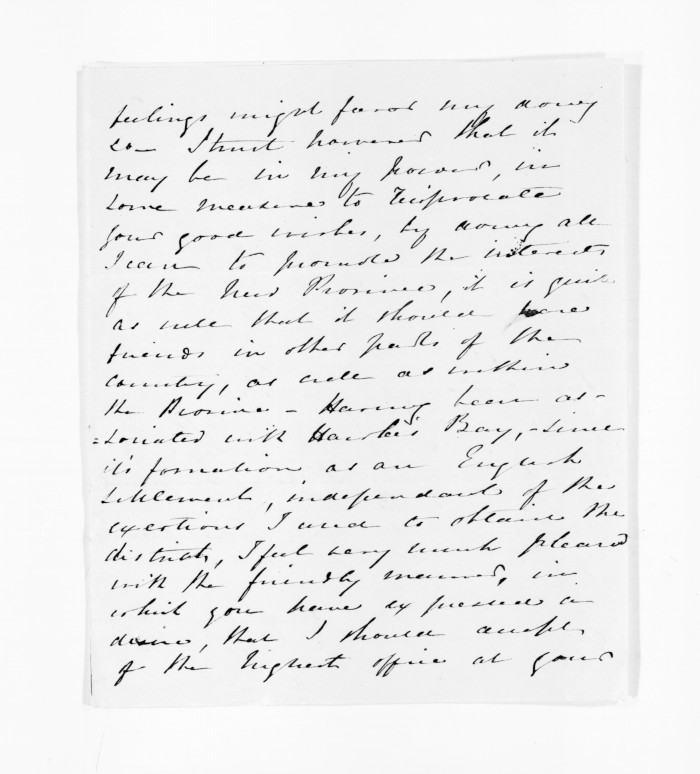 feelings might favor my doing
so - I trust however that it
may be in my power, in
some measure to reciprocate
your good wishes, by doing all
I can to promote the interests
of the New Province, it is quite
as well that it should have
friends in other parts of the
country, as well as within
the Province - Having been as-
=sociated with Hawke's Bay, - since
it's formation as an English
settlement, independant of the
exertions I used to obtain the
district, I feel very much pleased
with the friendly manner, in
which you have expressed a
desire, that I should accept
of the highest office at your